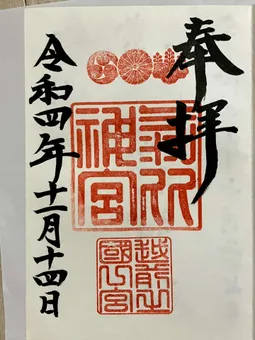 奉拝
氣比
神宮
越前之
國一宮
令和四年十一月十四日